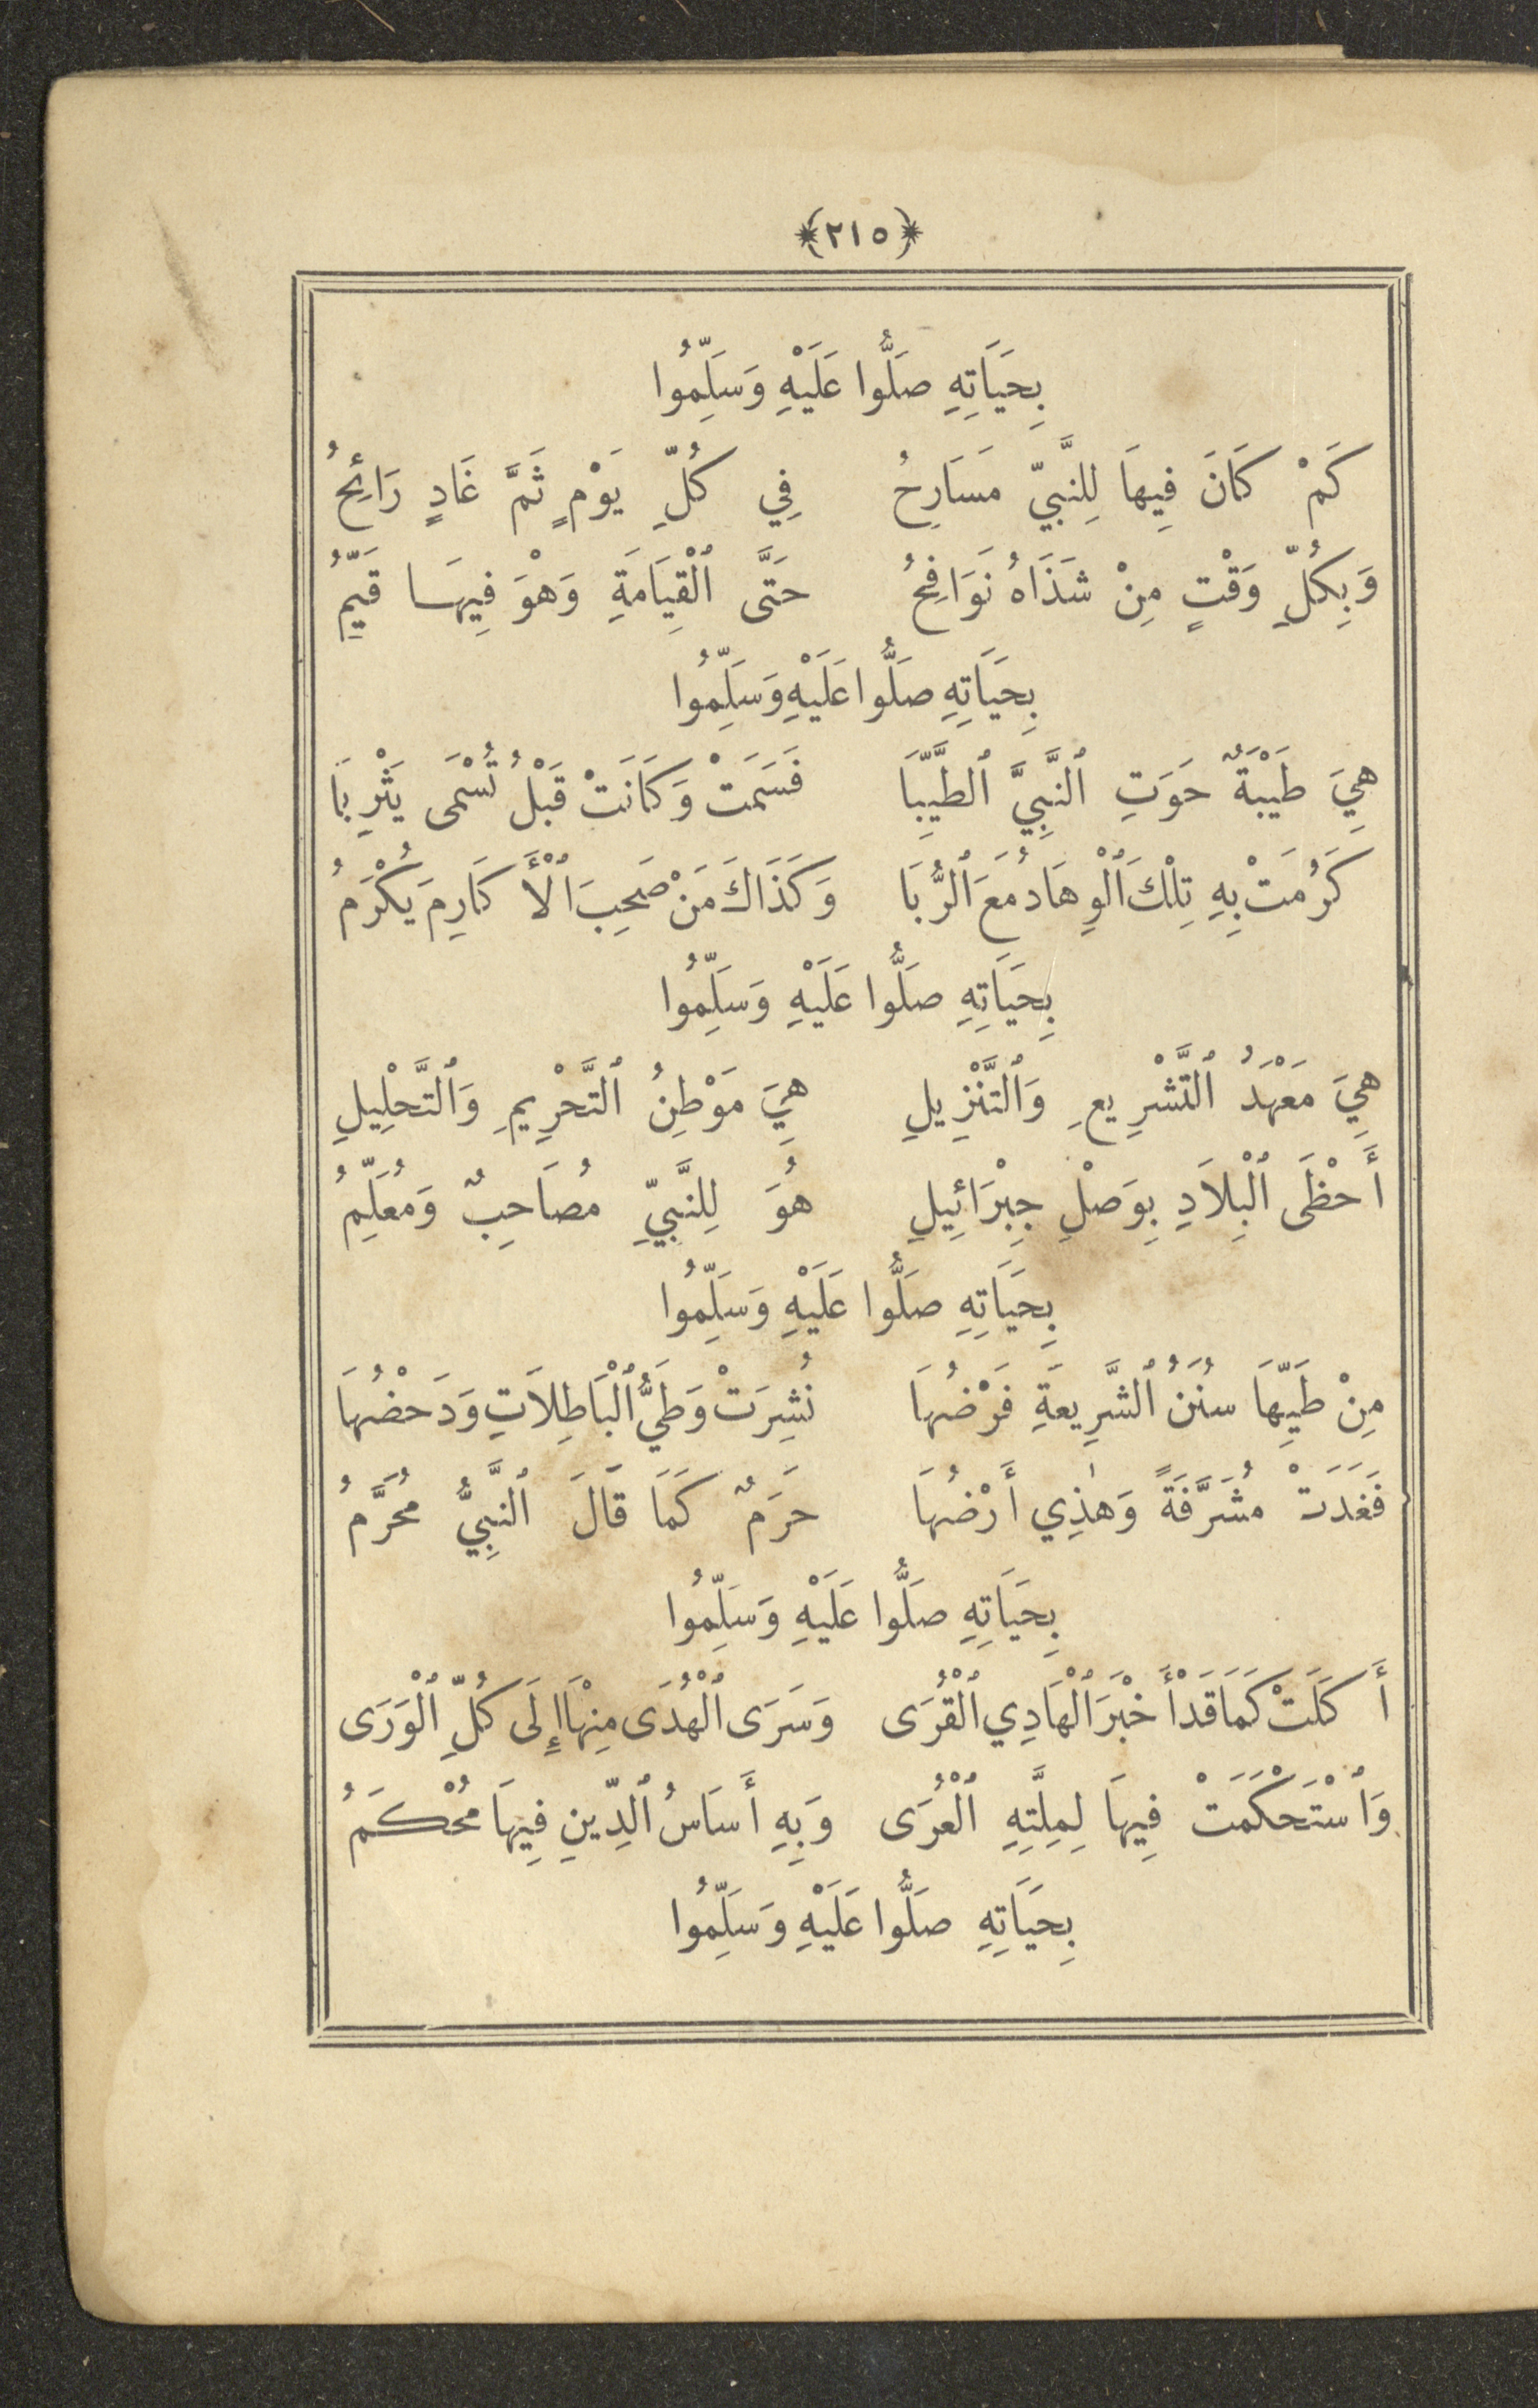 ﴿٢١٥﴾
بِحَيَاتِهِ صَلُّوا عَلَيْهِ وَسَلِّمُوا
كَمْ كَانَ فِيهَا لِلنَّبِيِّ مَسَارِحُ فِي كُلِّ يَوْمٍ ثَمَّ غَادٍ رَائِحُ
وَبِكُلِّ وَقْتٍ مِنْ شَذَاهُ نَوَافِحُ حَتَّى ٱلْقِيَامَةِ وَهْوَ فِيهَا قَيِّمُ
بِحَيَاتِهِ صَلُّوا عَلَيْهِ وَسَلِّمُوا
هِيَ طَيْبَةٌ حَوَتِ ٱلنَّبِيَّ ٱلطَّيِّبَا فَسَمَتْ وَكَانَتْ قَبْلُ تُسْمَى يَثْرِبَا
كَرُمَتْ بِهِ تِلْكَ ٱلْوِهَادُ مَعَ ٱلرُّبَا وَكَذَاكَ مَنْ صَحِبَ ٱلْأَكَارِمَ يُكْرَمُ
بِحَيَاتِهِ صَلُّوا عَلَيْهِ وَسَلِّمُوا
هِيَ مَعْهَدُ ٱلتَّشْرِيعِ وَٱلتَّنْزِيلِ هِيَ مَوْطِنُ ٱلتَّحْرِيمِ وَٱلتَّحْلِيلِ
أَحْظَى ٱلْبِلَادِ بِوَصْلِ جِبْرَائِيلِ هُوَ لِلنَّبِيِّ مُصَاحِبٌ وَمُعَلِّمُ
بِحَيَاتِهِ صَلُّوا عَلَيْهِ وَسَلِّمُوا
مِنْ طَيِّهَا سُنَنُ ٱلشَّرِيعَةِ فَرْضُهَا نُشِرَتْ وَطَيُّ ٱلْبَاطِلَاتِ وَدَحْضُهَا
فَغَدَتْ مُشَرَّفَةً وَهٰذِي أَرْضُهَا حَرَمٌ كَمَا قَالَ ٱلنَّبِيُّ مُحَرَّمُ
بِحَيَاتِهِ صَلُّوا عَلَيْهِ وَسَلِّمُوا
أَكَلَتْ كَمَا قَدْ أَخْبَرَ ٱلْهَادِي ٱلْقُرَى وَسَرَى ٱلْهُدَى مِنْهَا إِلَى كُلِّ ٱلْوَرَى
وَٱسْتَحْكَمَتْ فِيهَا لِمِلَّتِهِ ٱلْعُرَى وَبِهِ أَسَاسُ ٱلدِّينِ فِيهَا مُحْكَمُ
بِحَيَاتِهِ صَلُّوا عَلَيْهِ وَسَلِّمُوا